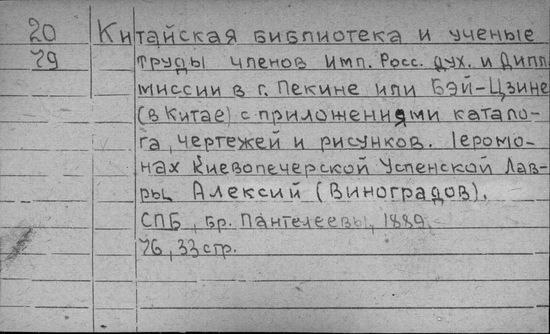 20 Китайская библиотека и ученые
79 труды членов Имп. Росс. дух. и Дипл.
миссии в г. Пекине или Бэй-Цзине
(в Китае) с приложениями катало-
га, чертежей и рисунков. Іеромо-
нах Киевопечерской Успенской Лав-
ры Алексий (Виноградов).
СПБ, бр. Пантелеевы, 1889.
76, 33 стр.